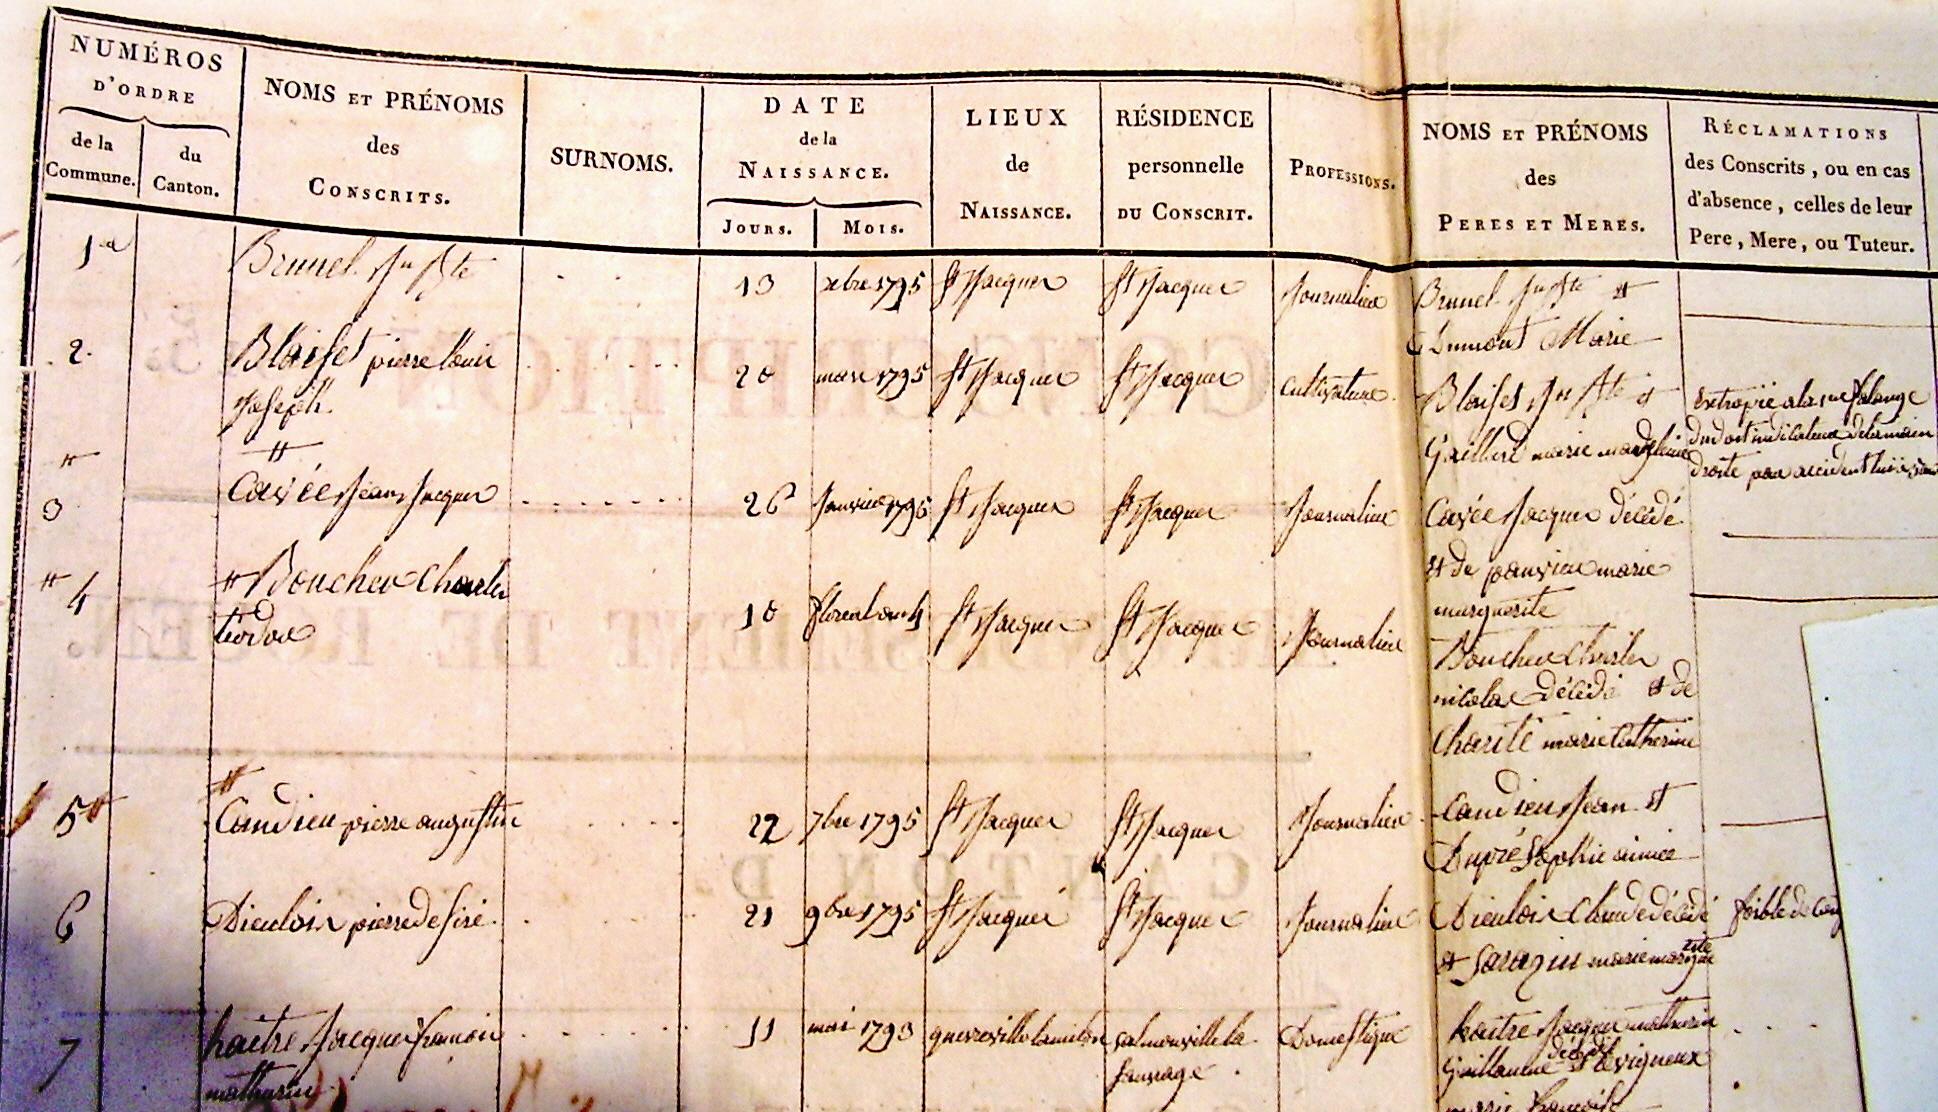 NUMÉROS
D'ORDRE
de la
Commune.
du
Canton.
NOMS ET PRÉNOMS
des
CONSCRITS.
SURNOMS.
DATE
de la
NAISSANCE.
JOURS.
MOIS.
LIEUX
de
NAISSANCE.
RÉSIDENCE
personnelle
DU CONSCRIT.
PROFESSIONS.
NOMS ET PRÉNOMS
des
PERES ET MERES.
RÉCLAMATIONS
des Conscrits, ou en cas
d'absence, celles de leur
Pere, Mere, ou Tuteur.
1er Brunel Jn Bte 13 xbre 1795 St Jacques St Jacques Journalier Brunel Jn Bte et
Dumont Marie
2. Blaiset pierre louis 20 mars 1795 St Jacques St Jacques Cultivateur Blaiset Jn Bte et
Joseph Gaillard marie magdeleine
Extropié a la 1ere falange
du doit indicateur de la main
droite par accident
3 Cavée Jean Jacques 26 Janvier 1795 St Jacques St Jacques Journalier Cavée Jacques décédé
et de marie
marguerite
4 Boucher Charles 10 floreal an 4 St Jacques St Jacques Journalier Boucher Charles
téodor nicolas décédé et de
Charité marie Catherine
5 Caudieu pierre augustin 22 7bre 1795 St Jacques St Jacques Journalier Caudieu Jean et
Dupré Sophie aimée
6 Dieulois pierre desiré 21 9bre 1795 St Jacques St Jacques Journalier Dieulois Claude décédé foible de
et Sarazin marie margte
7 haitre Jacques francois 11 mai 1793 salmonville la Domestique haitre Jacques mathurin
mathurin sauvage Guillaume décédé et levigneux
marie
CONSCRIPTION
ARRONDISSEMENT DE ROUEN.
CANTON D